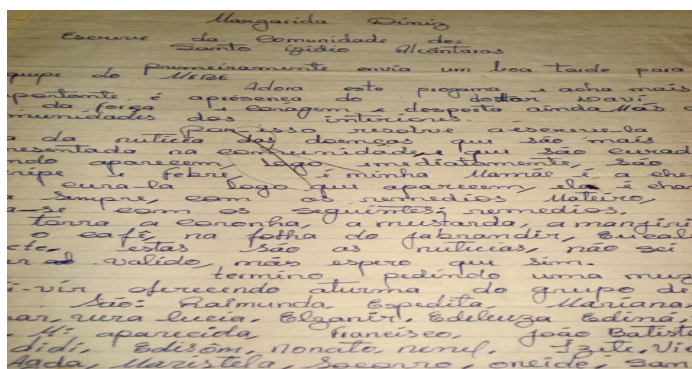 Margarida Diniz
Escreve da Comunidade de:
Santo igidio Alcântaras
Primeiramente envia um boa tarde para
quipe do MEBE
Adora este programa e acha mais
portante é apresença do doutor
da força e coragem e desperta ainda más
munidades dos interiores.
por isso resolve aescreve-la
da nutícia das doenças que são mais
resentada na comunidade, e que são curad
ndo aparecem, logo imediatamente, são
ripe e febre, i minha Mamãe é a che
cura-la logo que aparecem, ela é char
sempre, com os remedios Mateiro,
a-se com os seguintes remedios,
torra a coronha, a mustarda, a mangiri
o café, na folha do jabrandir, Eucali
cte, estas são as nutícias, não sei
valido, máis espero que sim.
termino pedindo uma muz
i-vir oferecendo aturma do grupo de
São: Raimunda Espedita, Mariana.
mar, vera lucia, Elzanir, Edeleuza Edina,
Mª aparecida, Francisco, João Batista
didi, Edisôm, nonato, nenel, Izete, Vie
Aada, Maristela, Socorro, oneide, Sam